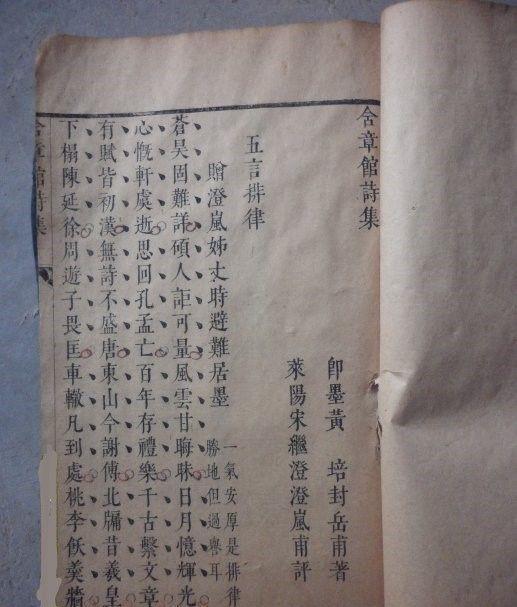 含章館詩集
即墨黃　培封岳甫著
萊陽宋繼澄澄嵐甫評
五言排律
贈澄嵐姊丈時避難居墨
一氣安厚是排律
勝地但過譽耳
蒼昊固難詳碩人詎可量風雲甘晦昧日月憶輝光
心慨軒虞逝思回孔孟亡百年存禮樂千古繫文章
有賦皆初漢無詩不盛唐東山今謝傅北牖昔羲皇
下榻陳延徐周遊子畏匡車轍凡到處桃李飫羹牆
含章館詩集